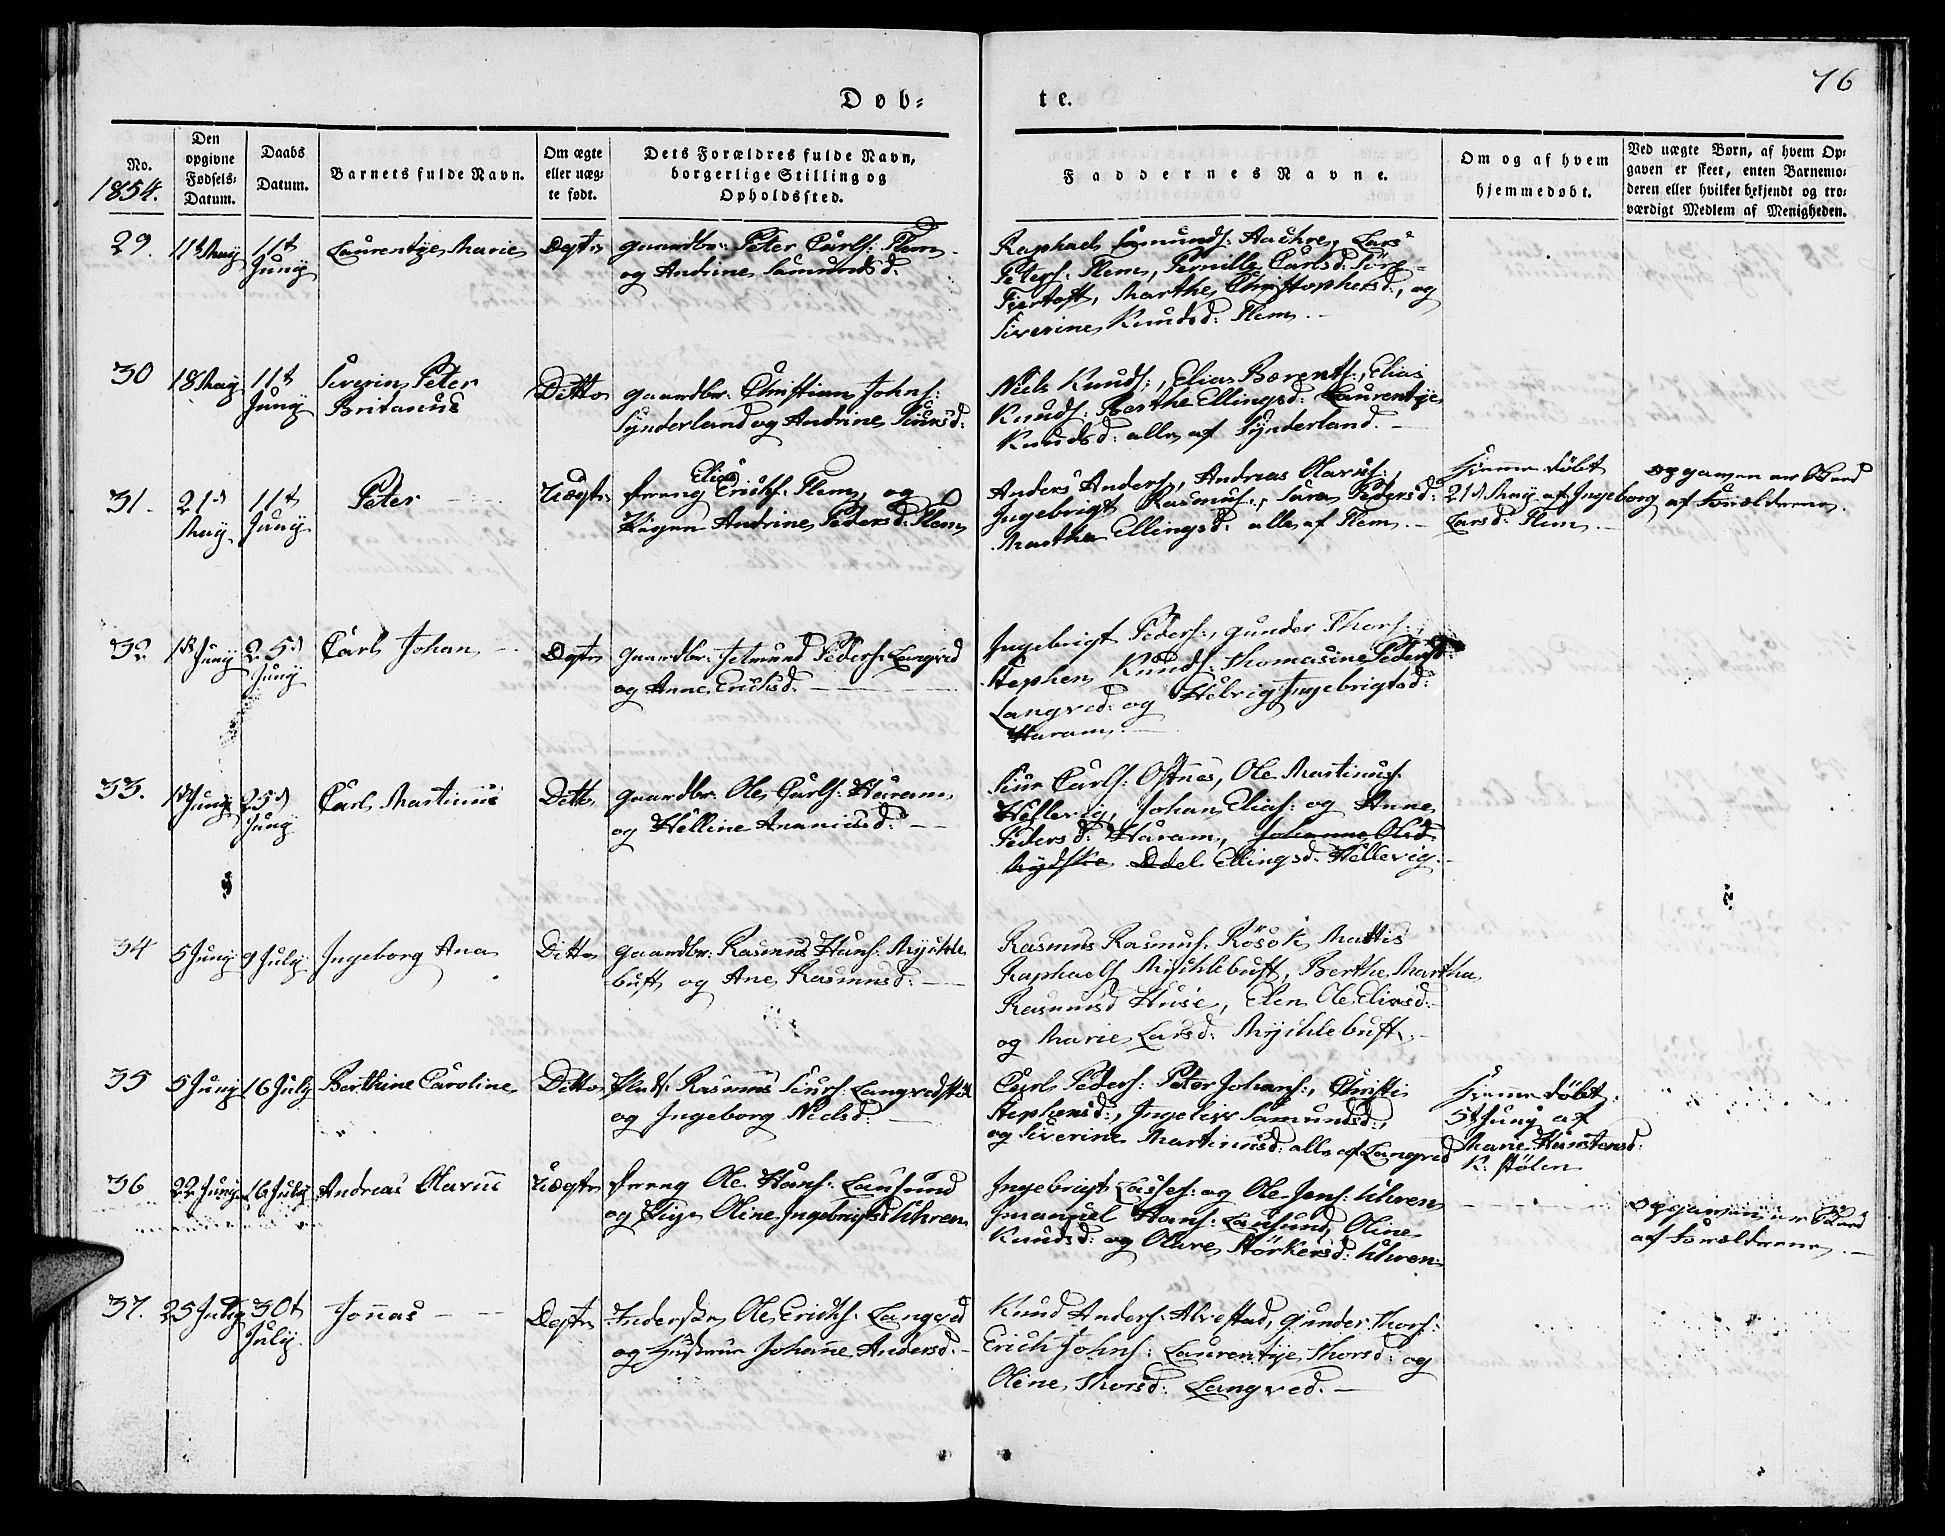 76
Døb= te.
No.
1854.
Den opgivne Fødsels-Datum.
Daabs Datum.
Barnets fulde Navn.
Om ægte eller uæg-te født.
Dets Forældres fulde Navn, borgerlige Stilling og Opholdssted.
Faddernes Navne.
Om og af hvem hjemmedøbt.
Ved uægte Børn, af hvem Op-gaven er skeet, enten Barnemo-deren eller hvilket bekjendt og tro-værdigt Medlem af Menigheden.
29. 11t May 11t Juny Laurentze Marie Ægte
Gaardbr: Peter Carls: Flem
og Andrine Samundsd:
Raphael Samunds: Aachre, Lars
Peters: Flem, Pernille Carlsd: Søre-
Fjertoft, Marthe Christophersd:, og
Severine Knudsd: Flem.
30 18 May 11t Juny Severin Peter
Britanus
Ditto
Gaardbr: Christian Johns:
Synderland og Andrine Siursd:
Niels Knuds:, Elias Bærents:, Elias
Knuds: Berthe Ellingsd: Laurentze
Knudsd: alle af Synderland.
31. 21d May 11t Juny Peter Uægte
Dreng Elias Erichs: Flem, og
Pigen Andrine Pedersd: Flem
Anders Anders:, Andreas Olarus:,
Ingebrigt Rasmus:, Sara Pedersd:
Martha Ellingsd: alle af Flem.
Hjemmedøbt
21d May af Ingeborg
Larsd: Flem.
opgaven er skeed
af Forældrene.
32. 1d Juny 25d Juny Carl Johan Ægte
Gaardbr: Jetmund Peders: Langved
og Anne Erichsd.
Ingebrigt Peders:, Gunder Thors:,
Stephen Knuds: Thomasine Pedersd:
Langved: og Helvig Ingebrigtsd:
Haram.
33. 1d Juny 25d Juny Carl Martinus Ditto
Gaardbr: Ole Carls: Haram,
og Helline Ananiasd:
Siur Carls: Ostnes, Ole Martinus:
Hellevig, Johan Elias: og Anne
Pedersd: Haram, Johanne Olsd
Ødel Ellingsd: Hellevig.
34 5 Juny 9 July Ingeborg Ana Ditto
Gaardbr: Rasmus Hans: Myckle
bust og Ane Rasmusd:
Rasmus Rasmus: Røsok, Mattis
Raphaels Mychlebust, Berthe Martha
Rasmusd Huse, Elen Ole Elisd:
og Marie Larsd: Mychlebust.
35 5 Juny 16 July Berthine Caroline Ditto
Plads: Rasmus Siurs: Langvedstøl
og Ingeborg Nielsd:
Carl Peders: Peter Johans:, Christi
Stephensd:, Ingeleiv Samundsd:,
og Severine Martinusd: alle af Langved
Hjemmedøbt
5t Juny af
Marie Thorstensd:
K: stølen
36 22 Juny 16 July Andreas Olarus Uægte
Dreng Ole Hans: Lausund
og Pige Oline Ingebrigtsd Uhren
Ingebrigt Lasses: og Ole Jens: Uhren
Imanuel Hans: Lausund, Oline
Knudsd: og Olave Størkersd: Uhren:
opgaven er skeed
af Forældrene.
37. 25 July 30t July Jonas Ægte
Inderster Ole Erichs: Langved
og Hustrue Johanne Andersd:
Knud Anders: Alvestad, Gunder Thors:
Erich Johns: Laurentze Thorsd: og
Oline Thorsd: Langved.